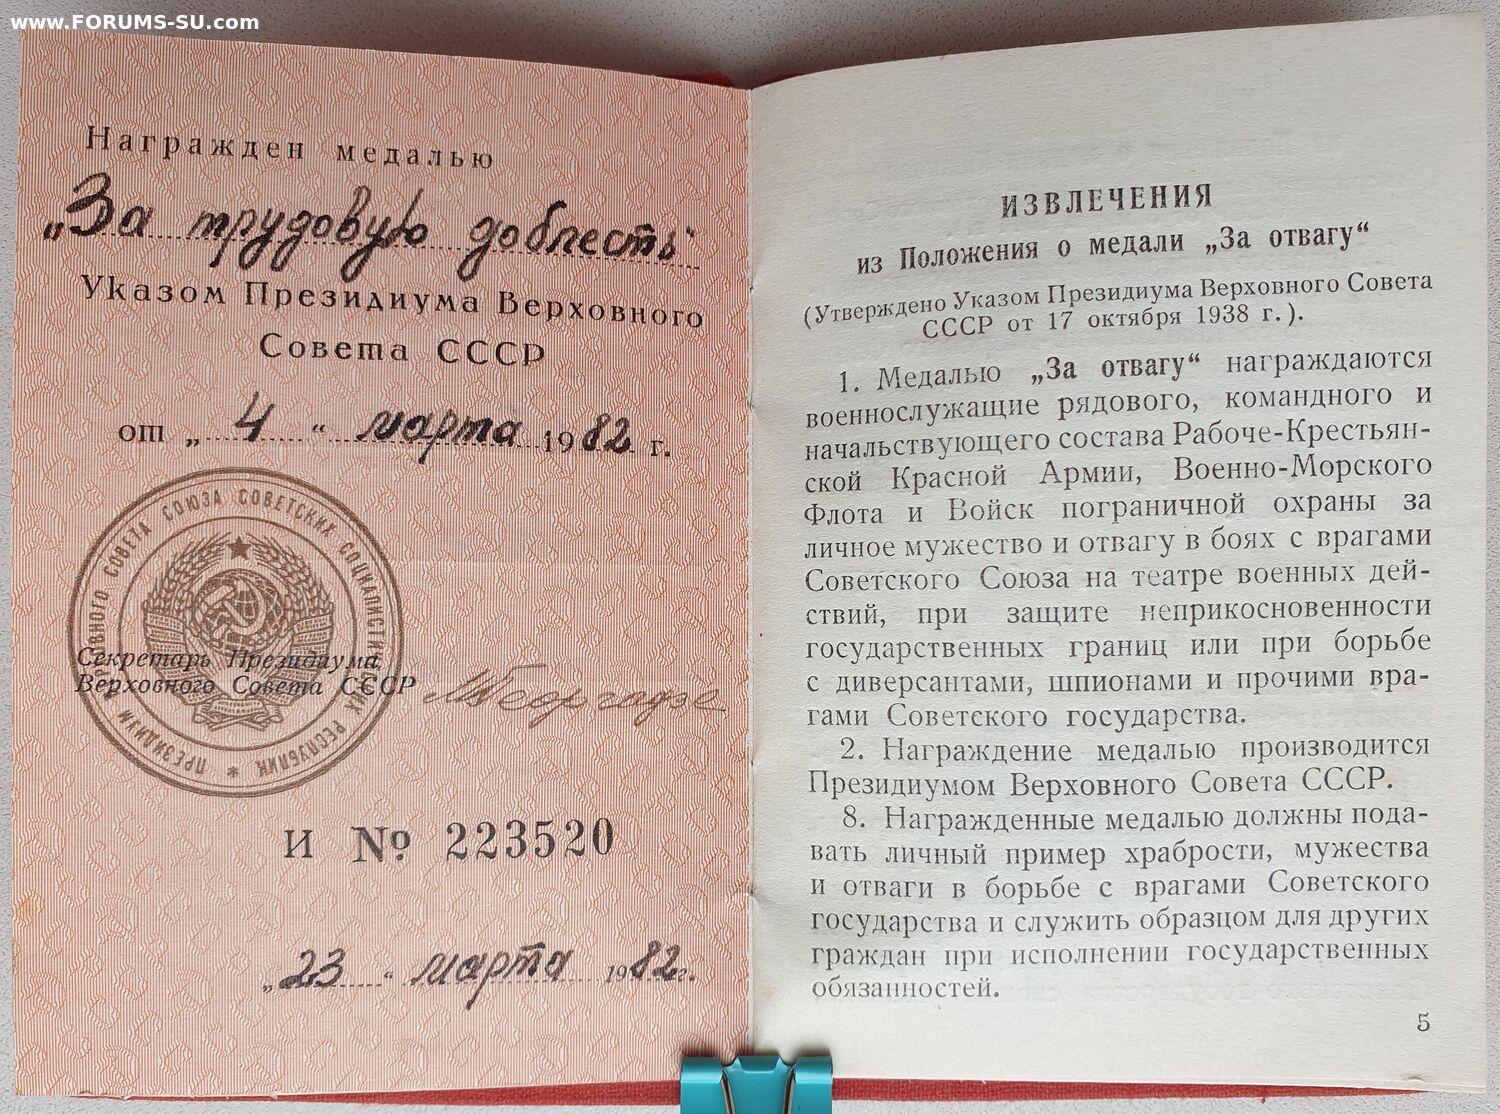 www.FORUMS-SU.com
Награжден медалью
„За трудовую доблесть“
Указом Президиума Верховного
Совета СССР
от „4“ марта 1982 г.
ПРЕЗИДИУМ ВЕРХОВНОГО СОВЕТА СОЮЗА СОВЕТСКИХ СОЦИАЛИСТИЧЕСКИХ РЕСПУБЛИК *
Секретарь Президиума
Верховного Совета СССР
МГеоргадзе
И № 223520
„23“ марта 1982 г.
ИЗВЛЕЧЕНИЯ
из Положения о медали „За отвагу“
(Утверждено Указом Президиума Верховного Совета
СССР от 17 октября 1938 г.).
1. Медалью „За отвагу“ награждаются
военнослужащие рядового, командного и
начальствующего состава Рабоче-Крестьян-
ской Красной Армии, Военно-Морского
Флота и Войск пограничной охраны за
личное мужество и отвагу в боях с врагами
Советского Союза на театре военных дей-
ствий, при защите неприкосновенности
государственных границ или при борьбе
с диверсантами, шпионами и прочими вра-
гами Советского государства.
2. Награждение медалью производится
Президиумом Верховного Совета СССР.
8. Награжденные медалью должны пода-
вать личный пример храбрости, мужества
и отваги в борьбе с врагами Советского
государства и служить образцом для других
граждан при исполнении государственных
обязанностей.
5